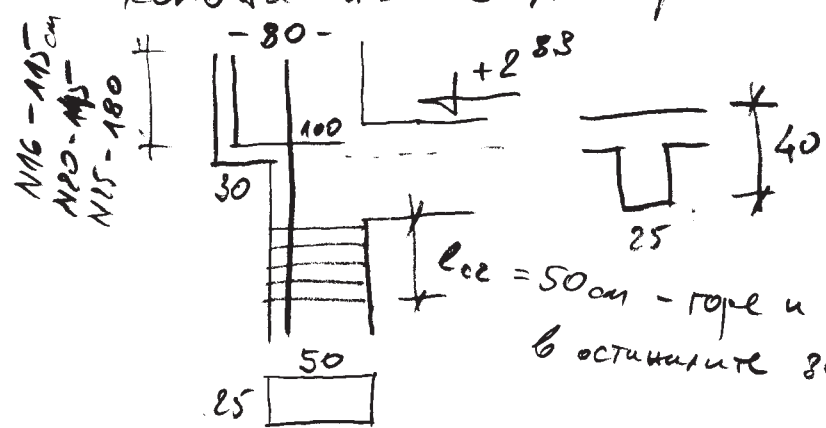 N16 - 115 cm
N20 - 145
N25 - 180
- 80 -
+2 83
100
30
40
25
lсг = 50 cm - горе и
в останалите
50
25